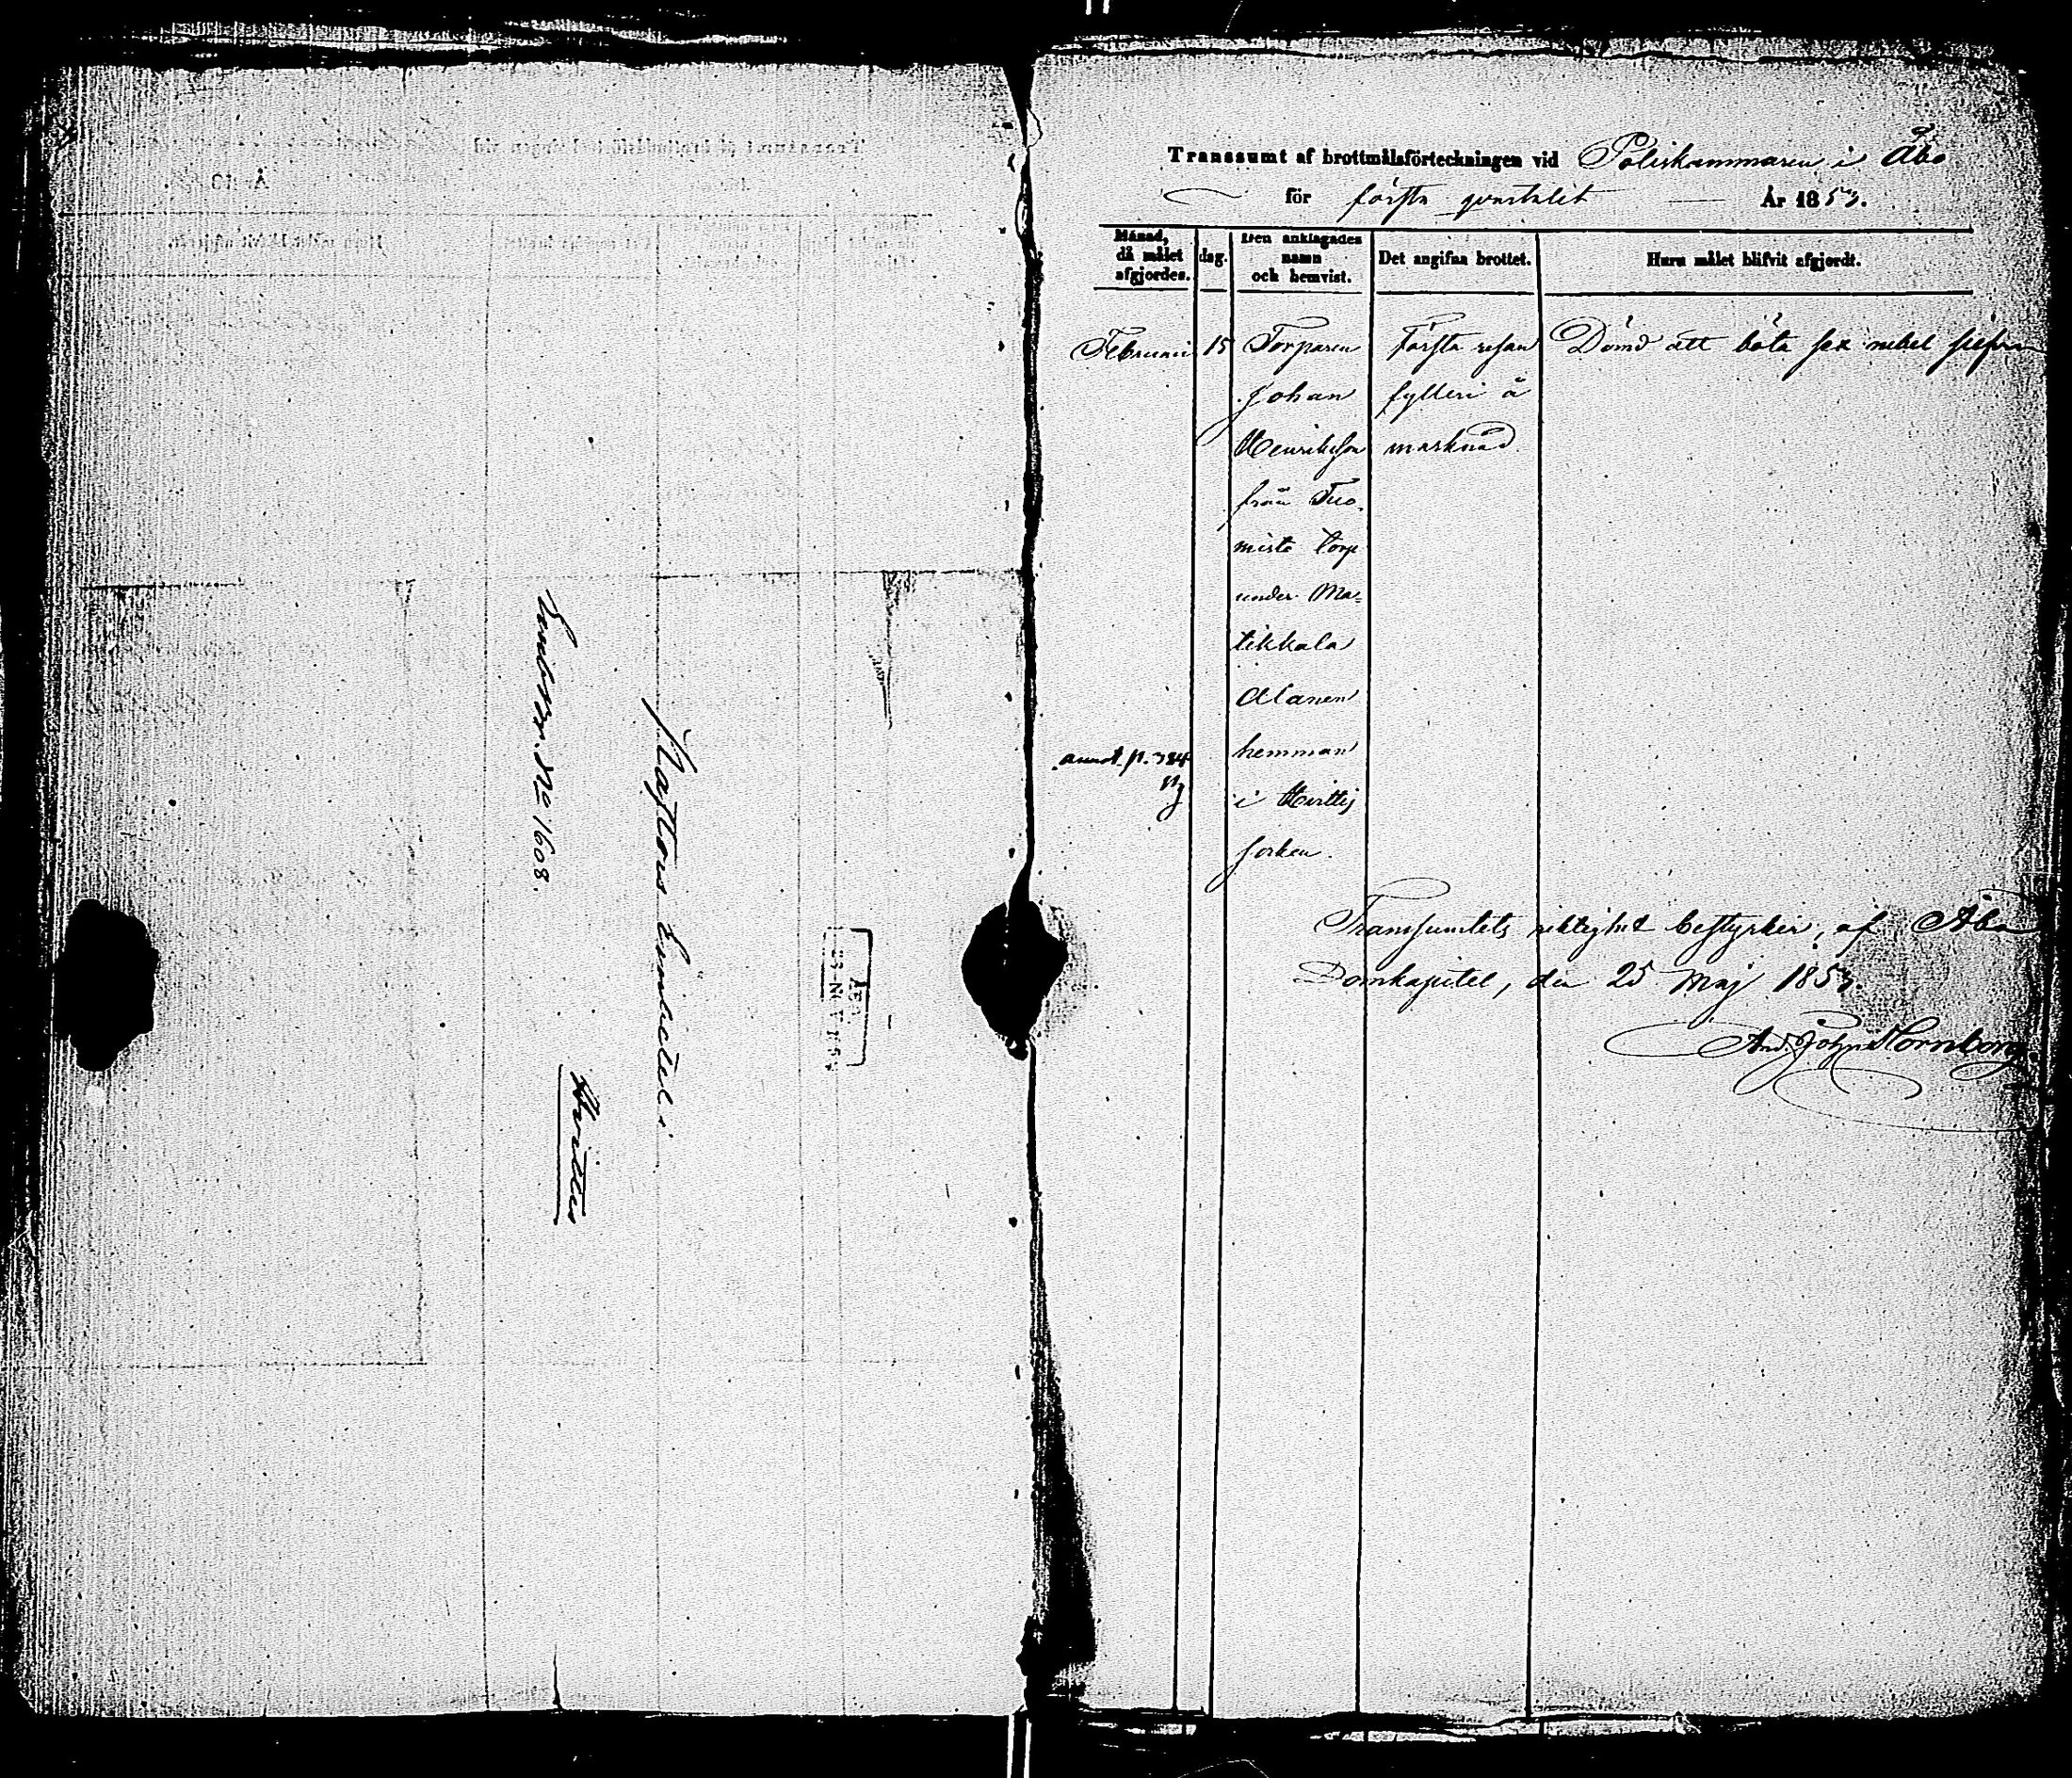 Embtr. No 1608.
Pastors Embetet i
Hvittis
ÅBO
Transsumt af brottmålsförteckningen vid Poliskammaren i Åbo
för första qvartalet År 1853.
Månad, då målet afgjordes. dag. Den anklagades namn och hemvist. Det angifna brottet. Huru målet blifvit afgjordt.
Februari 15 Torparen Första resan Dömd att böta sex rubel silfver
Johan fylleri å
Henriksson marknad.
från Tuo-
misto torp
under Ma-
tikkala
Alanen
annot. p. 384 hemman
i Hvittis
socken.
Transsumtets riktighet bestyrker, af Åbo
Domkapitel, den 25 Maj 1853.
And. Joh. Hornborg